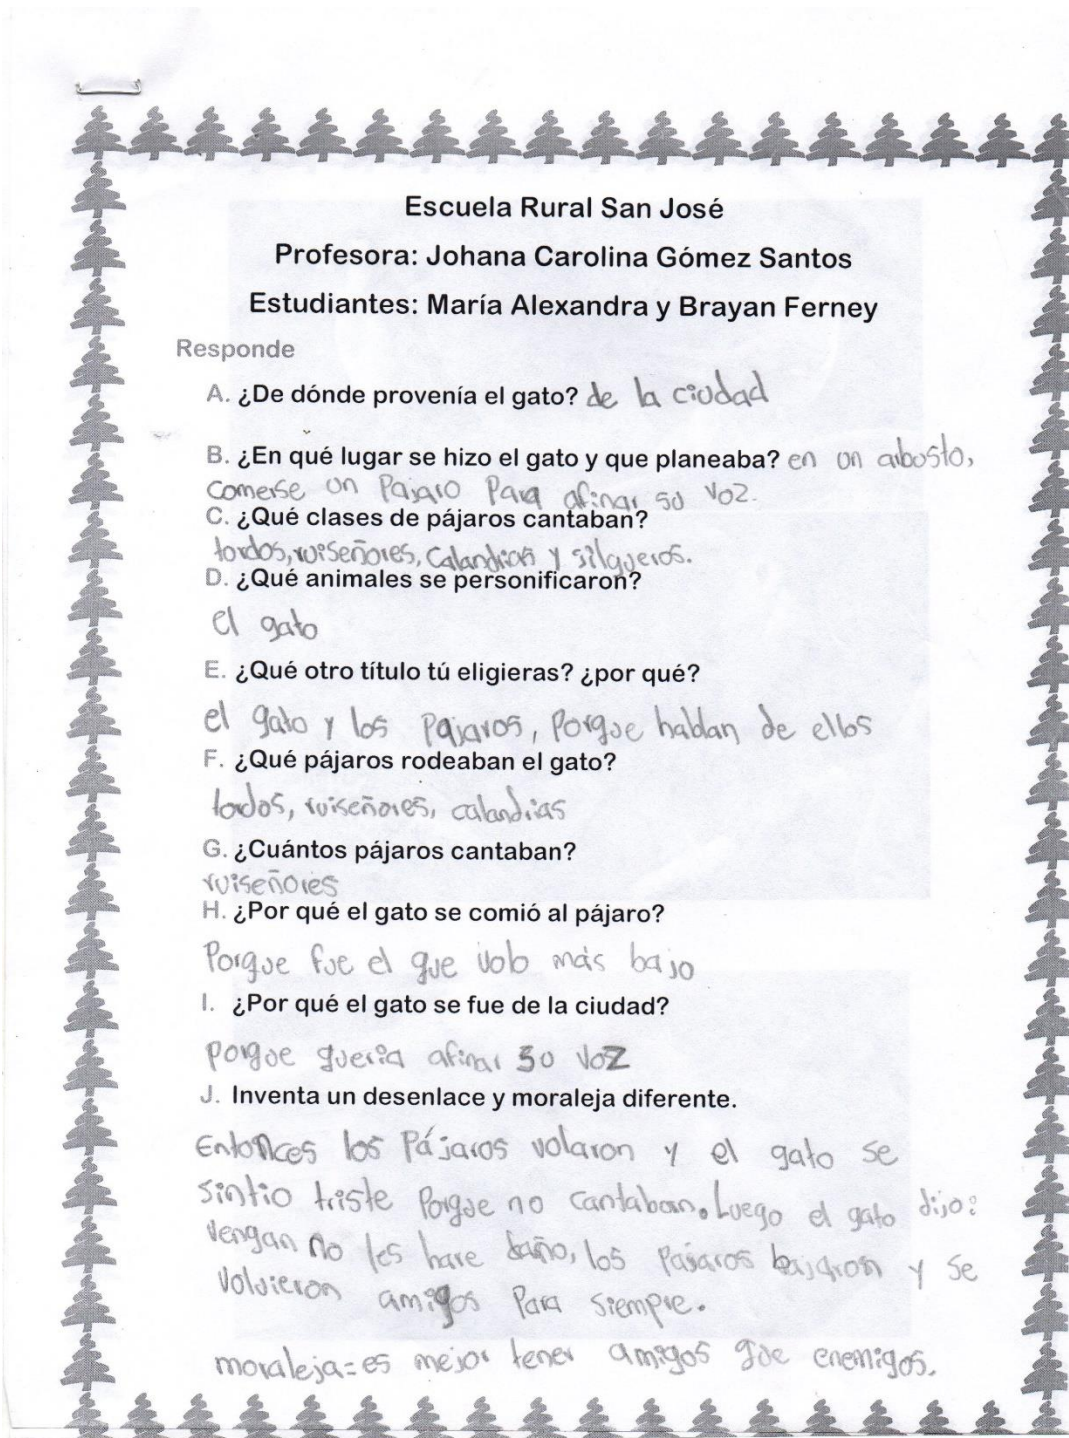 Escuela Rural San José
Profesora: Johana Carolina Gómez Santos
Estudiantes: María Alexandra y Brayan Ferney
Responde
A. ¿De dónde provenía el gato? de la ciudad
B. ¿En qué lugar se hizo el gato y que planeaba? en un arbusto,
comerse un Pajaro Para afinar su voz.
C. ¿Qué clases de pájaros cantaban?
tordos, ruiseñores, calandrias y silgueros.
D. ¿Qué animales se personificaron?
el gato
E. ¿Qué otro título tú eligieras? ¿por qué?
el gato y los pajaros, Porque hablan de ellos
F. ¿Qué pájaros rodeaban el gato?
tordos, ruiseñores, calandrias
G. ¿Cuántos pájaros cantaban?
ruiseñores
H. ¿Por qué el gato se comió al pájaro?
Porque fue el que volo más bajo
I. ¿Por qué el gato se fue de la ciudad?
porque queria afinar su voz
J. Inventa un desenlace y moraleja diferente.
Entonces los Pájaros volaron y el gato se
sintio triste Porque no cantaban. Luego el gato dijo:
vengan no les hare daño, los pajaros bajaron y se
volvieron amigos Para siempre.
moraleja=es mejor tener amigos que enemigos.